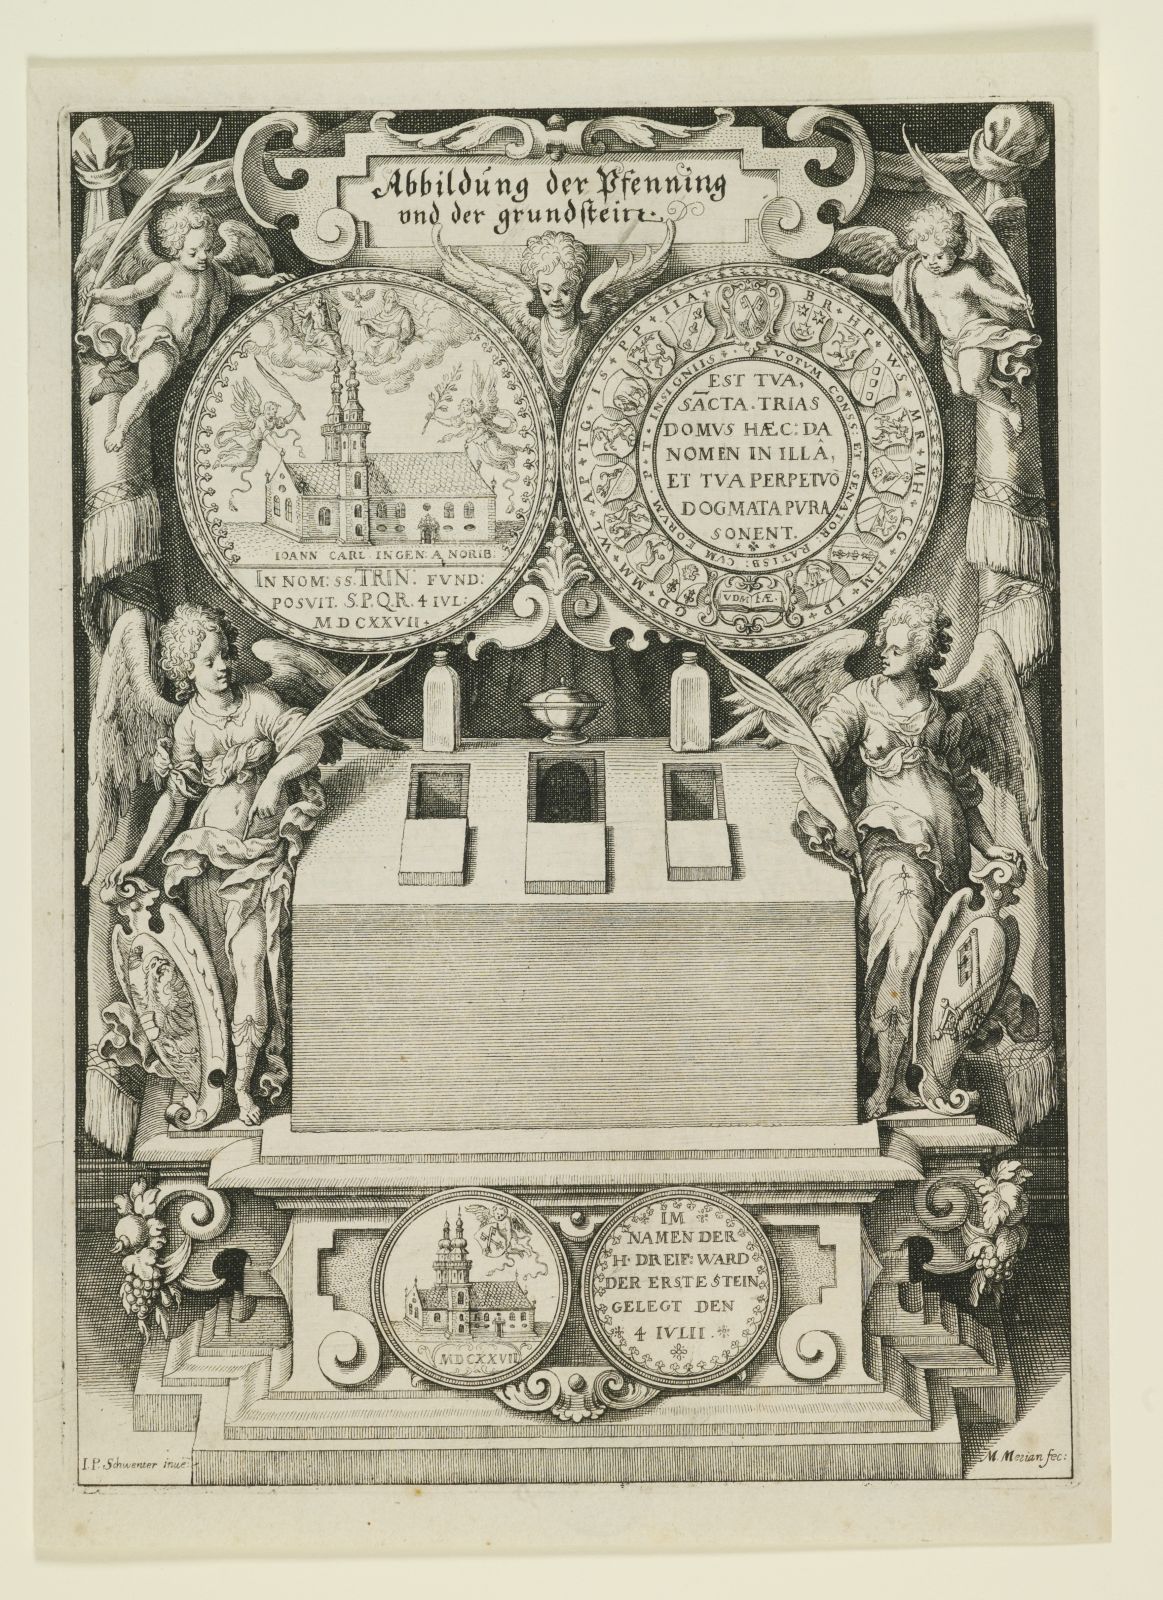 Abbildung der Pfenning
vnd der grundstein.
IOANN CARL INGEN: A NORIB:
IN NOM: SS. TRIN: FUND:
POSVIT. S.P.Q.R. 4 IVL:
MDCXXVII
BR + HP + WS + MR + MH + CG + HM + IP + GD + MM + WL + AP + TG + IS + PP + IIA +
VOTVM CONSS: ET SENATOR RATISB: CVM EORVM P. T. INSIGNIIS +
EST TVA,
SĀCTA. TRIAS
DOMVS HÆC: DA
NOMEN IN ILLÂ,
ET TVA PERPETVÒ
DOGMATA PVRA
SONENT.
VDM IÆ
MDCXXVII
IM
NAMEN DER
H· DREIF: WARD
DER ERSTE STEIN
GELEGT DEN
4 IVLII.
I.P. Schwenter inue:
M. Merian fec: